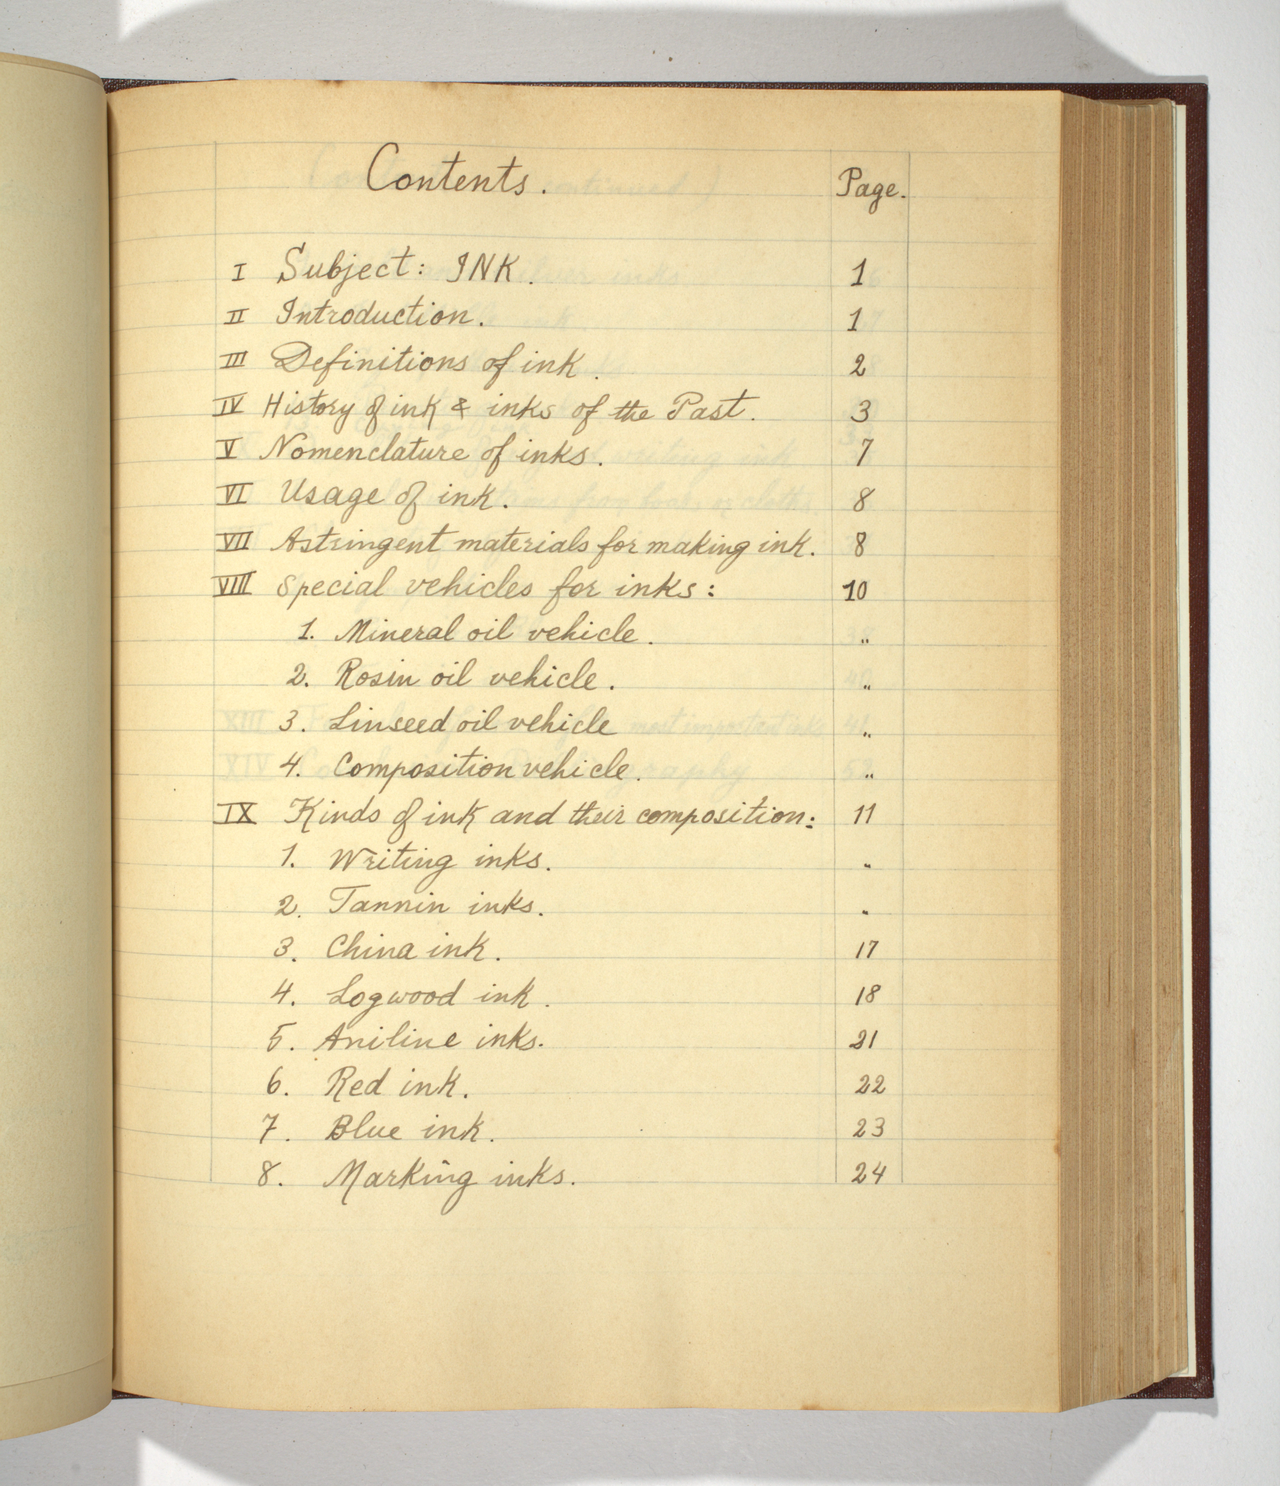 Contents. Page.
I Subject: INK. 1
II Introduction. 1
III Definitions of ink. 2
IV History of ink & inks of the Past. 3
V Nomenclature of inks. 7
VI Usage of ink. 8
VII Astringent materials for making ink. 8
VIII Special vehicles for inks: 10
1. Mineral oil vehicle. "
2. Rosin oil vehicle. "
3. Linseed oil vehicle "
4. Composition vehicle. "
IX Kinds of ink and their composition: 11
1. Writing inks. "
2. Tannin inks. "
3. China ink. 17
4. Logwood ink. 18
5. Aniline inks. 21
6. Red ink. 22
7. Blue ink. 23
8. Marking inks. 24